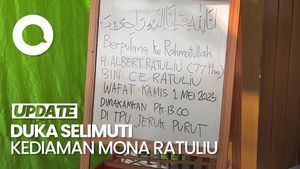 إنا لله وإنا إليه راجعون
Berpulang Ke Rahmatullah
H. ALBERT RATULIU (77 thn)
BIN CE RATULIU
WAFAT KAMIS 1 MEI 2025
DIMAKAMKAN PK. 13.00
DI TPU JERUK PURUT
UPDATE
DUKA SELIMUTI
KEDIAMAN MONA RATULIU